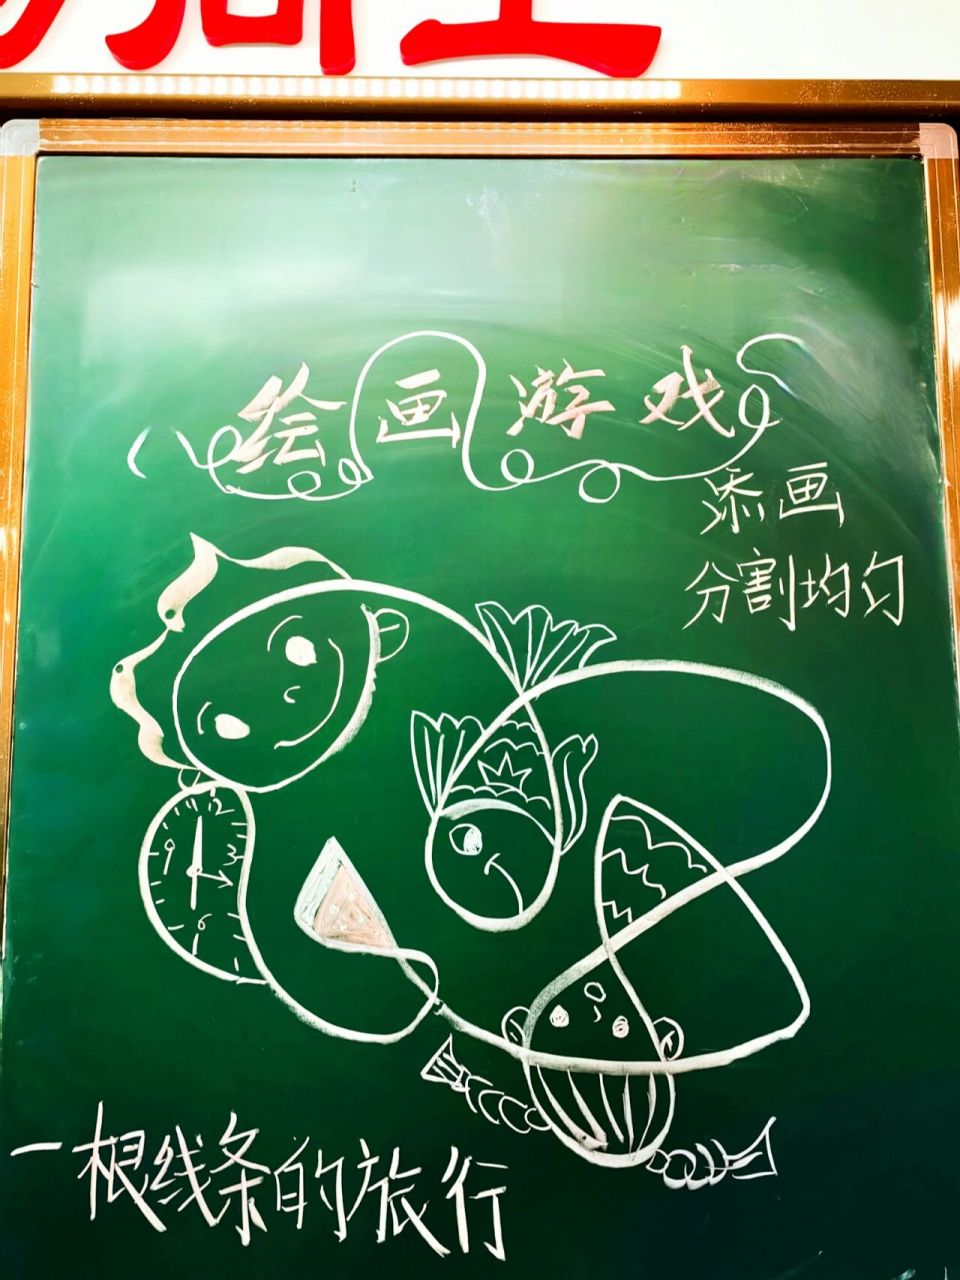 绘画游戏
添画
分割均匀
12
9 3
6
一根线条的旅行